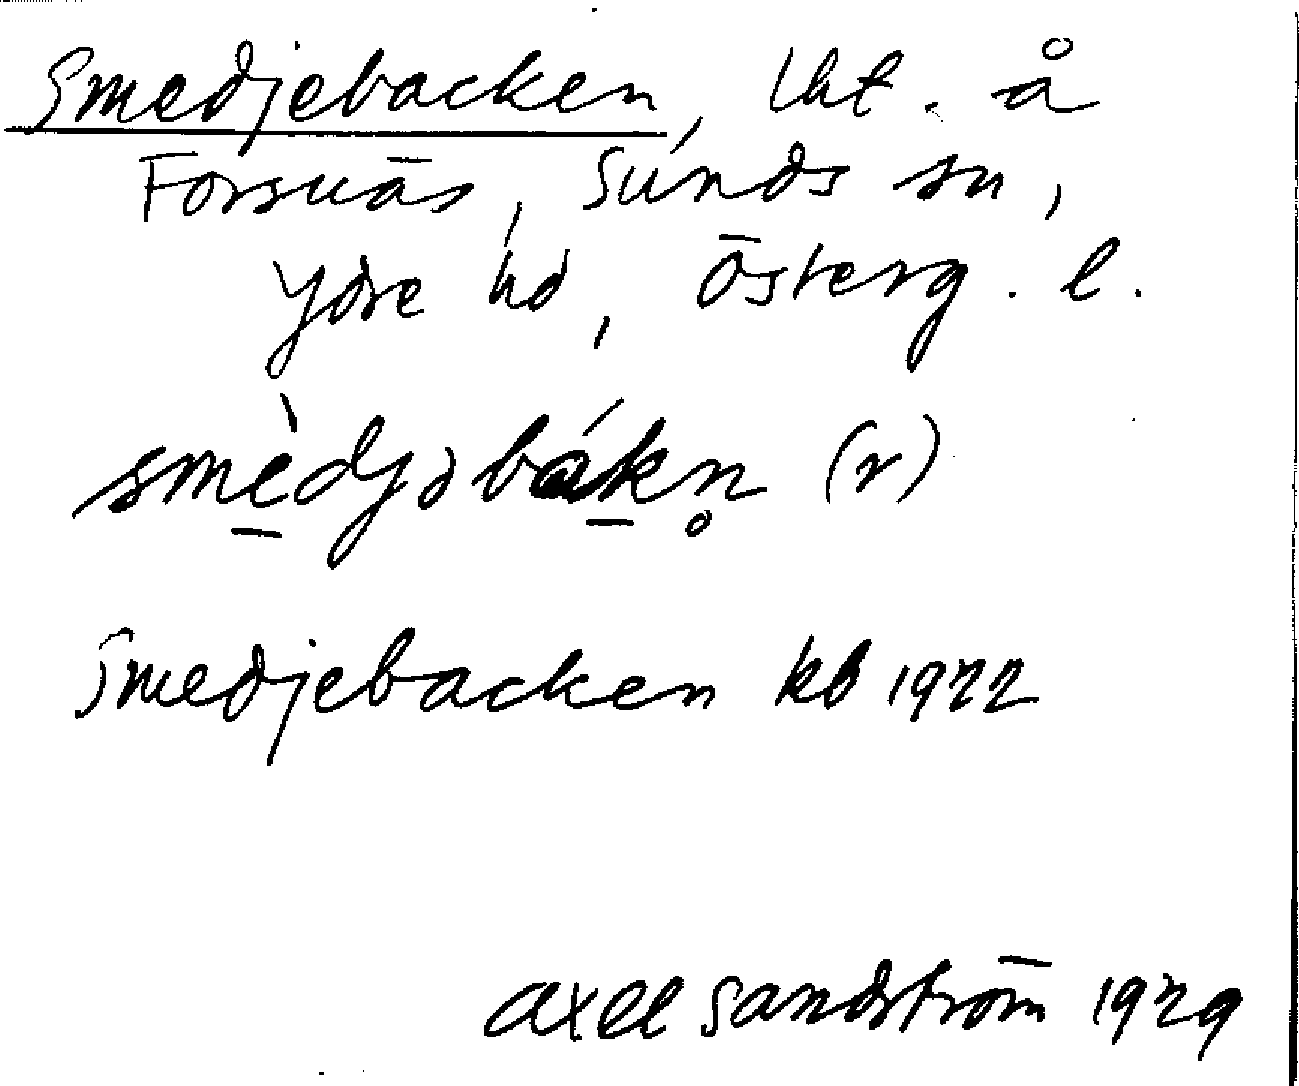 Smedjebacken, lht. å
Forsnäs, Sunds sn,
Ydre hd, Österg. l.
smèdjəbákn̥ (r)
Smedjebacken kb 1922
Axel Sandström 1929